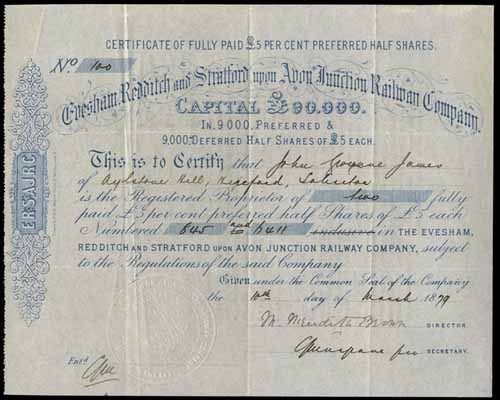 CERTIFICATE OF FULLY PAID £5 PER CENT PREFERRED HALF SHARES.
No. 100
Evesham, Redditch and Stratford upon Avon Junction Railway Company.
CAPITAL £90.000.
IN 9000 PREFERRED &
9,000 DEFERRED HALF SHARES OF £5 EACH.
This is to Certify that John James
of Aylstone Hill, Hereford, Solicitor
is the Registered Proprietor of two fully
paid £5 per cent preferred half Shares of £5 each
Numbered 845 and 6411 inclusive IN THE EVESHAM,
REDDITCH AND STRATFORD UPON AVON JUNCTION RAILWAY COMPANY, subject
to the Regulations of the said Company
Given under the Common Seal of the Company
the 10th day of March 1879
M. Meredith Brown DIRECTOR.
SECRETARY.
Entd.
ERSAJRC